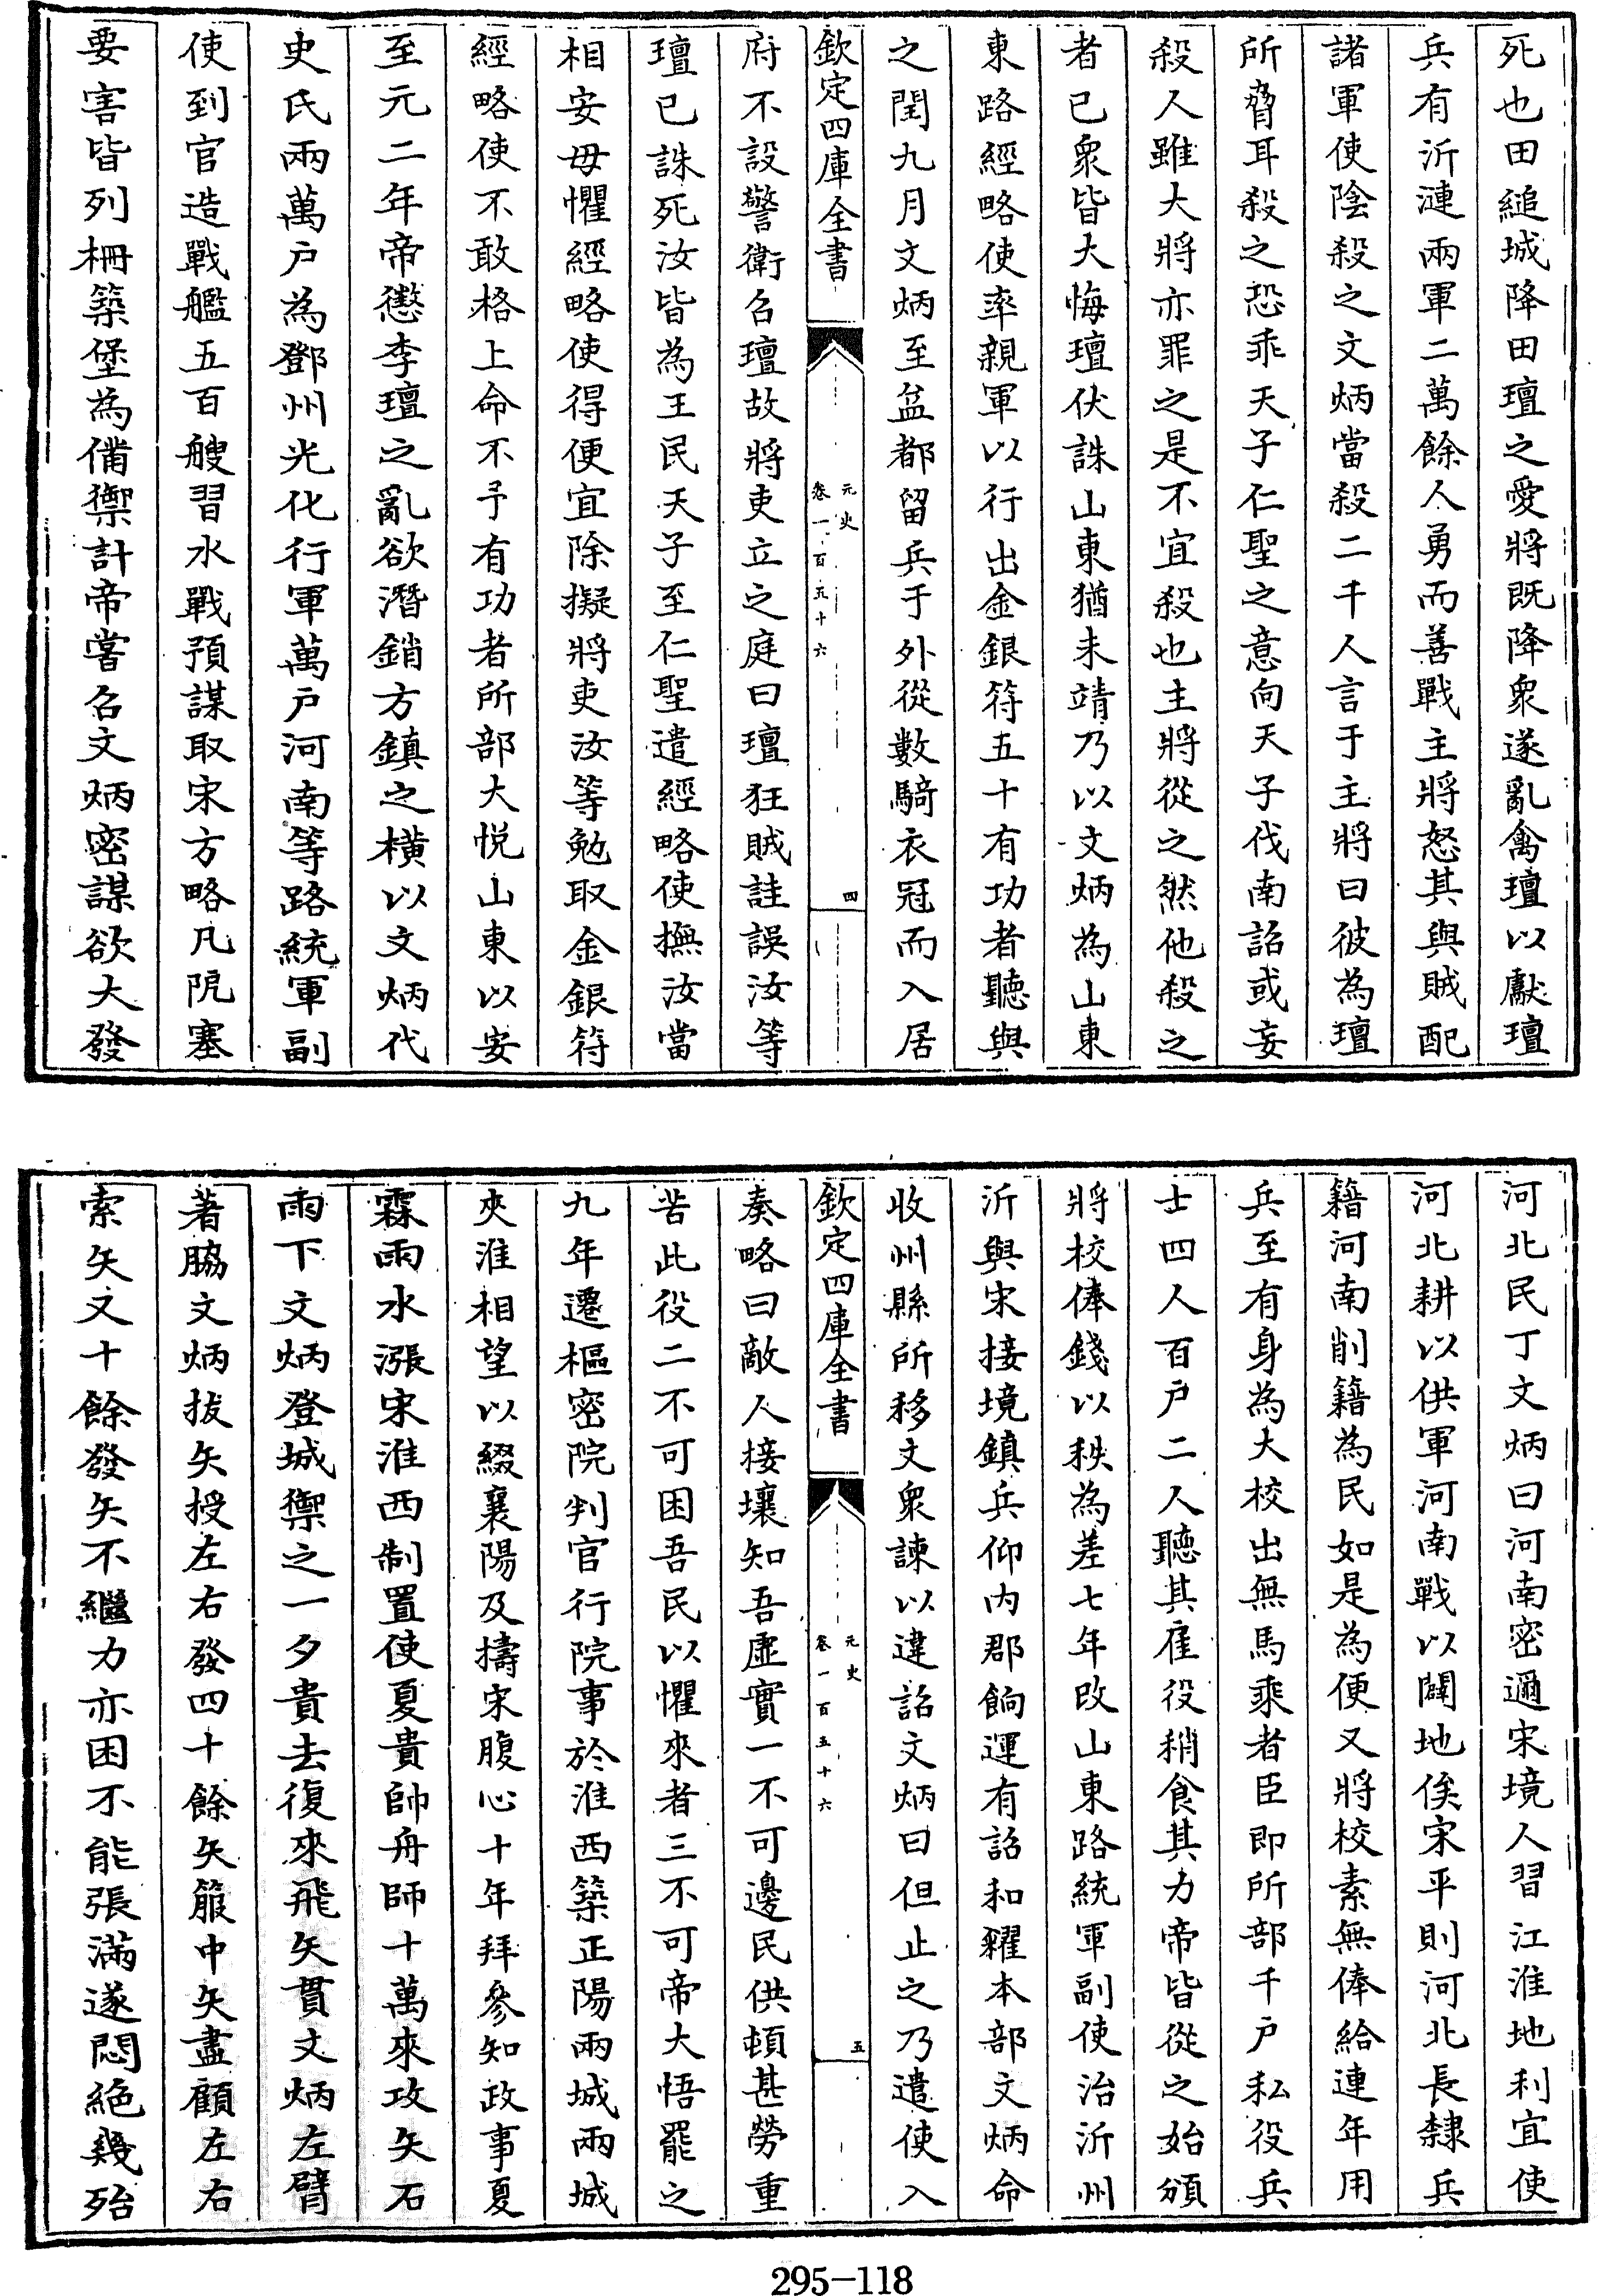 死也田縋城降田璮之愛將既降衆遂亂禽璮以獻璮
兵有沂漣兩軍二萬餘人勇而善戰主將怒其與賊配
諸軍使陰殺之文炳當殺二千人言于主將曰彼為璮
所脅耳殺之恐乖天子仁聖之意向天子伐南詔或妄
殺人雖大將亦罪之是不宜殺也主將從之然他殺之
者已衆皆大悔璮伏誅山東猶未靖乃以文炳為山東
東路經略使率親軍以行出金銀符五十有功者聽與
之閏九月文炳至益都留兵于外從數騎衣冠而入居
欽定四庫全書
元史
卷一百五十六
四
府不設警衛召璮故將吏立之庭曰璮狂賊詿誤汝等
璮已誅死汝皆為王民天子至仁聖遣經略使撫汝當
相安毋懼經略使得便宜除擬將吏汝等勉取金銀符
經略使不敢格上命不予有功者所部大悅山東以安
至元二年帝懲李璮之亂欲潛銷方鎮之橫以文炳代
史氏兩萬户為鄧州光化行軍萬户河南等路統軍副
使到官造戰艦五百艘習水戰預謀取宋方略凡阨塞
要害皆列柵築堡為備禦計帝嘗召文炳密謀欲大發
河北民丁文炳曰河南密邇宋境人習江淮地利宜使
河北耕以供軍河南戰以闢地俟宋平則河北長隸兵
籍河南削籍為民如是為便又將校素無俸給連年用
兵至有身為大校出無馬乘者臣即所部千户私役兵
士四人百户二人聽其雇役稍食其力帝皆從之始頒
將校俸錢以秩為差七年改山東路統軍副使治沂州
沂與宋接境鎮兵仰内郡餉運有詔和糴本部文炳命
收州縣所移文衆諫以違詔文炳曰但止之乃遣使入
欽定四庫全書
元史
卷一百五十六
五
奏略曰敵人接壤知吾虛實一不可邊民供頓甚勞重
苦此役二不可困吾民以懼來者三不可帝大悟罷之
九年遷樞密院判官行院事於淮西築正陽兩城兩城
夾淮相望以綴襄陽及擣宋腹心十年拜參知政事夏
霖雨水漲宋淮西制置使夏貴帥舟師十萬來攻矢石
雨下文炳登城禦之一夕貴去復來飛矢貫文炳左臂
著脇文炳拔矢授左右發四十餘矢箙中矢盡顧左右
索矢又十餘發矢不繼力亦困不能張滿遂悶絕幾殆
295-118